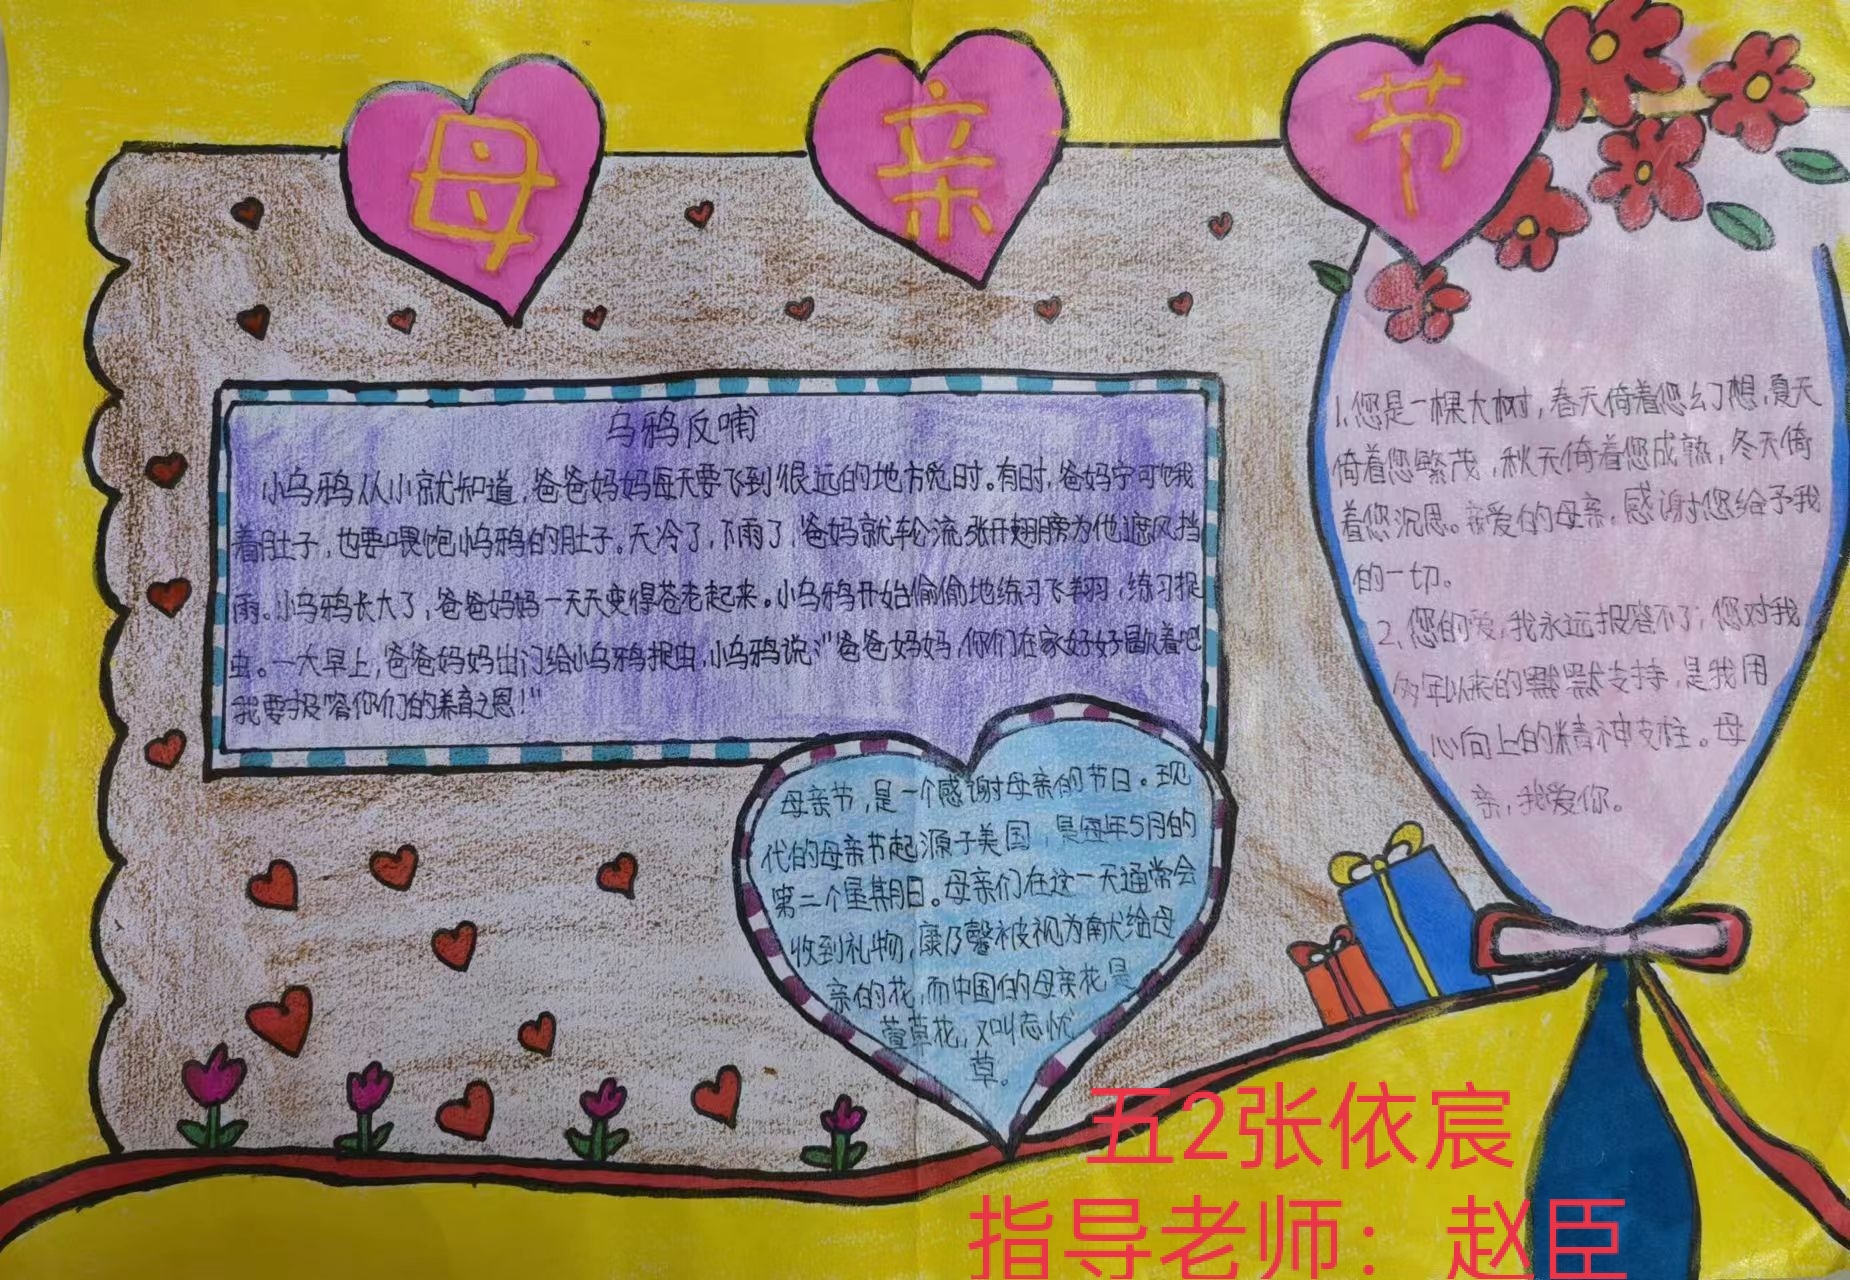 母亲节
乌鸦反哺
小乌鸦从小就知道，爸爸妈妈每天要飞到很远的地方觅时。有时，爸妈宁可饿
着肚子，也要喂饱小乌鸦的肚子。天冷了，下雨了，爸妈就轮流张开翅膀为他遮风挡
雨。小乌鸦长大了，爸爸妈妈一天天变得苍老起来。小乌鸦开始偷偷地练习飞翔，练习捉
虫。一大早上，爸爸妈妈出门给小乌鸦捉虫，小乌鸦说：“爸爸妈妈，你们在家好好歇着吧
我要报答你们的养育之恩！”
母亲节，是一个感谢母亲的节日。现
代的母亲节起源于美国，是每年5月的
第二个星期日。母亲们在这一天通常会
收到礼物，康乃馨被视为献给母
亲的花，而中国的母亲花是
萱草花，又叫忘忧
草。
1.您是一棵大树，春天倚着您幻想，夏天
倚着您繁茂，秋天倚着您成熟，冬天倚
着您沉思。亲爱的母亲，感谢您给予我
的一切。
2.您的爱，我永远报答不了；您对我
多年以来的默默支持，是我用
心向上的精神支柱。母
亲，我爱你。
五2张依宸
指导老师：赵臣